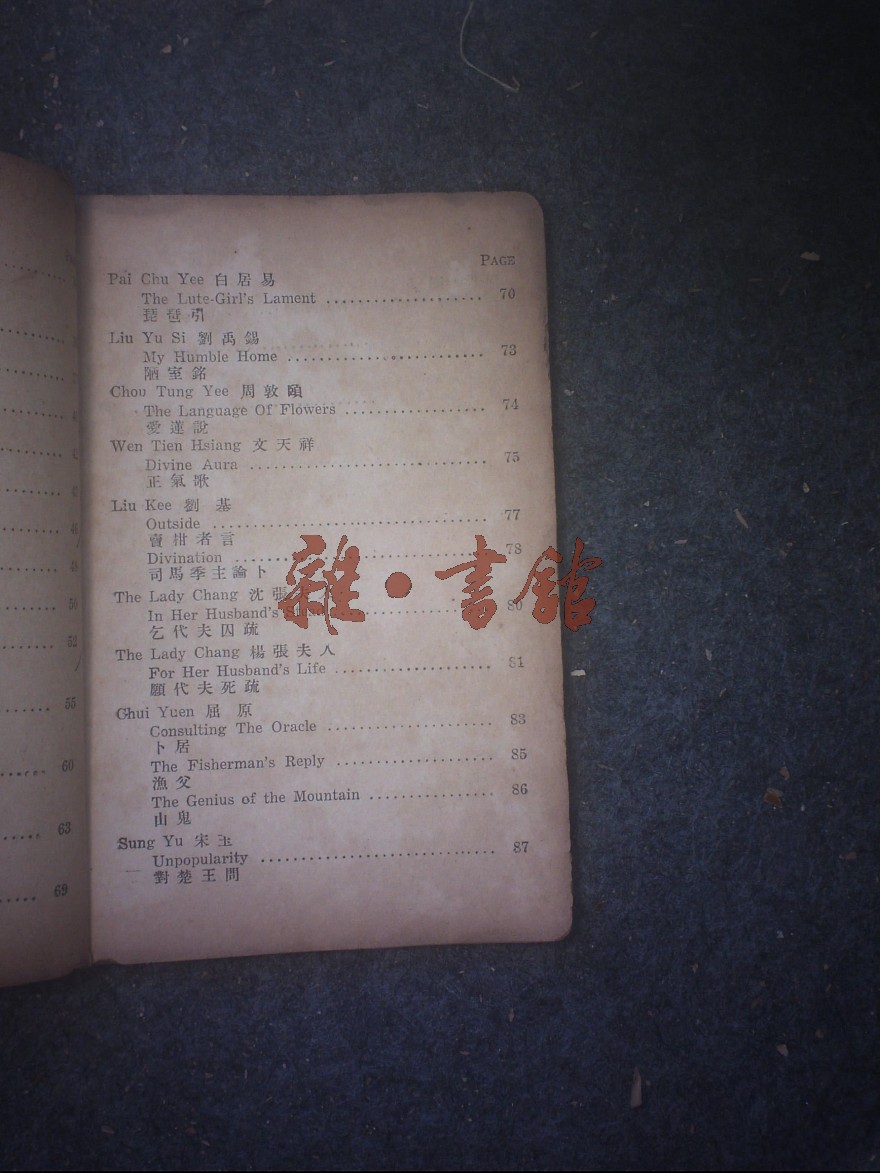 PAGE
Pai Chu Yee 白居易
The Lute-Girl's Lament ........................ 70
琵琶引
Liu Yu Si 劉禹錫
My Humble Home ........................ 73
陋室銘
Chou Tung Yee 周敦頤
The Language Of Flowers ........................ 74
愛蓮說
Wen Tien Hsiang 文天祥
Divine Aura ........................ 75
正氣歌
Liu Kee 劉基
Outside ........................ 77
賣柑者言
Divination ........................ 78
司馬季主論卜
The Lady Chang 沈張夫
In Her Husband's ........................ 80
乞代夫囚疏
The Lady Chang 楊張夫人
For Her Husband's Life ........................ 81
願代夫死疏
Chui Yuen 屈原
Consulting The Oracle ........................ 83
卜居
The Fisherman's Reply ........................ 85
漁父
The Genius of the Mountain ........................ 86
山鬼
Sung Yu 宋玉
Unpopularity ........................ 87
對楚王問
雜·書館
55
60
63
69
48
50
52